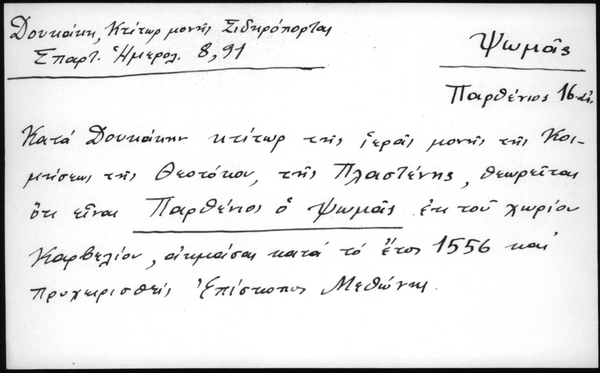 Δουκάκη, Κτίτωρ μονῆς Σιδηρόπορτας
Σπαρτ. Ἡμερολ. 8, 91
Ψωμᾶς
Παρθένιος 16 αἰ.
Κατά Δουκάκην κτίτωρ τῆς ἱερᾶς μονῆς τῆς Κοι-
μήσεως τῆς Θεοτόκου, τῆς Πλαστένης, θεωρεῖται
ὅτι εἶναι Παρθένιος ὁ Ψωμᾶς ἐκ τοῦ χωρίου
Καρβελίου, ἀκμάσας κατά τό ἔτος 1556 καί
προχειρισθείς Ἐπίσκοπος Μεθώνης.